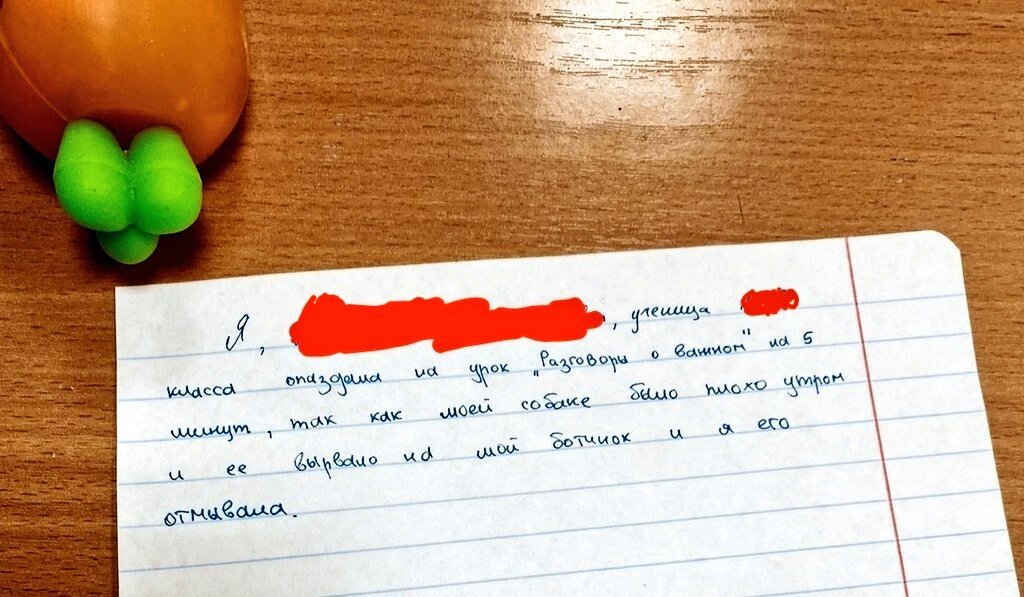 Я, , ученица
класса опаздала на урок „Разговоры о важном" на 5
минут, так как моей собаке было плохо утром
и ее вырвало на мой ботинок и я его
отмывала.